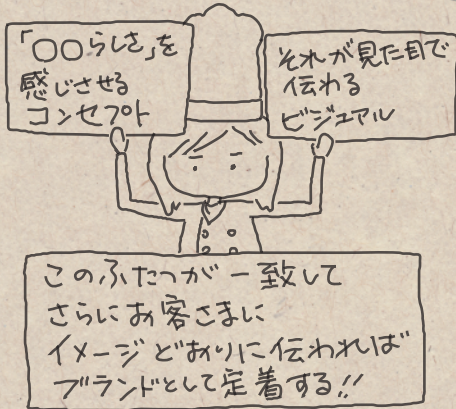 「〇〇らしさ」を
感じさせる
コンセプト
それが見た目で
伝わる
ビジュアル
このふたつが一致して
さらにお客さまに
イメージどおりに伝われば
ブランドとして定着する!!